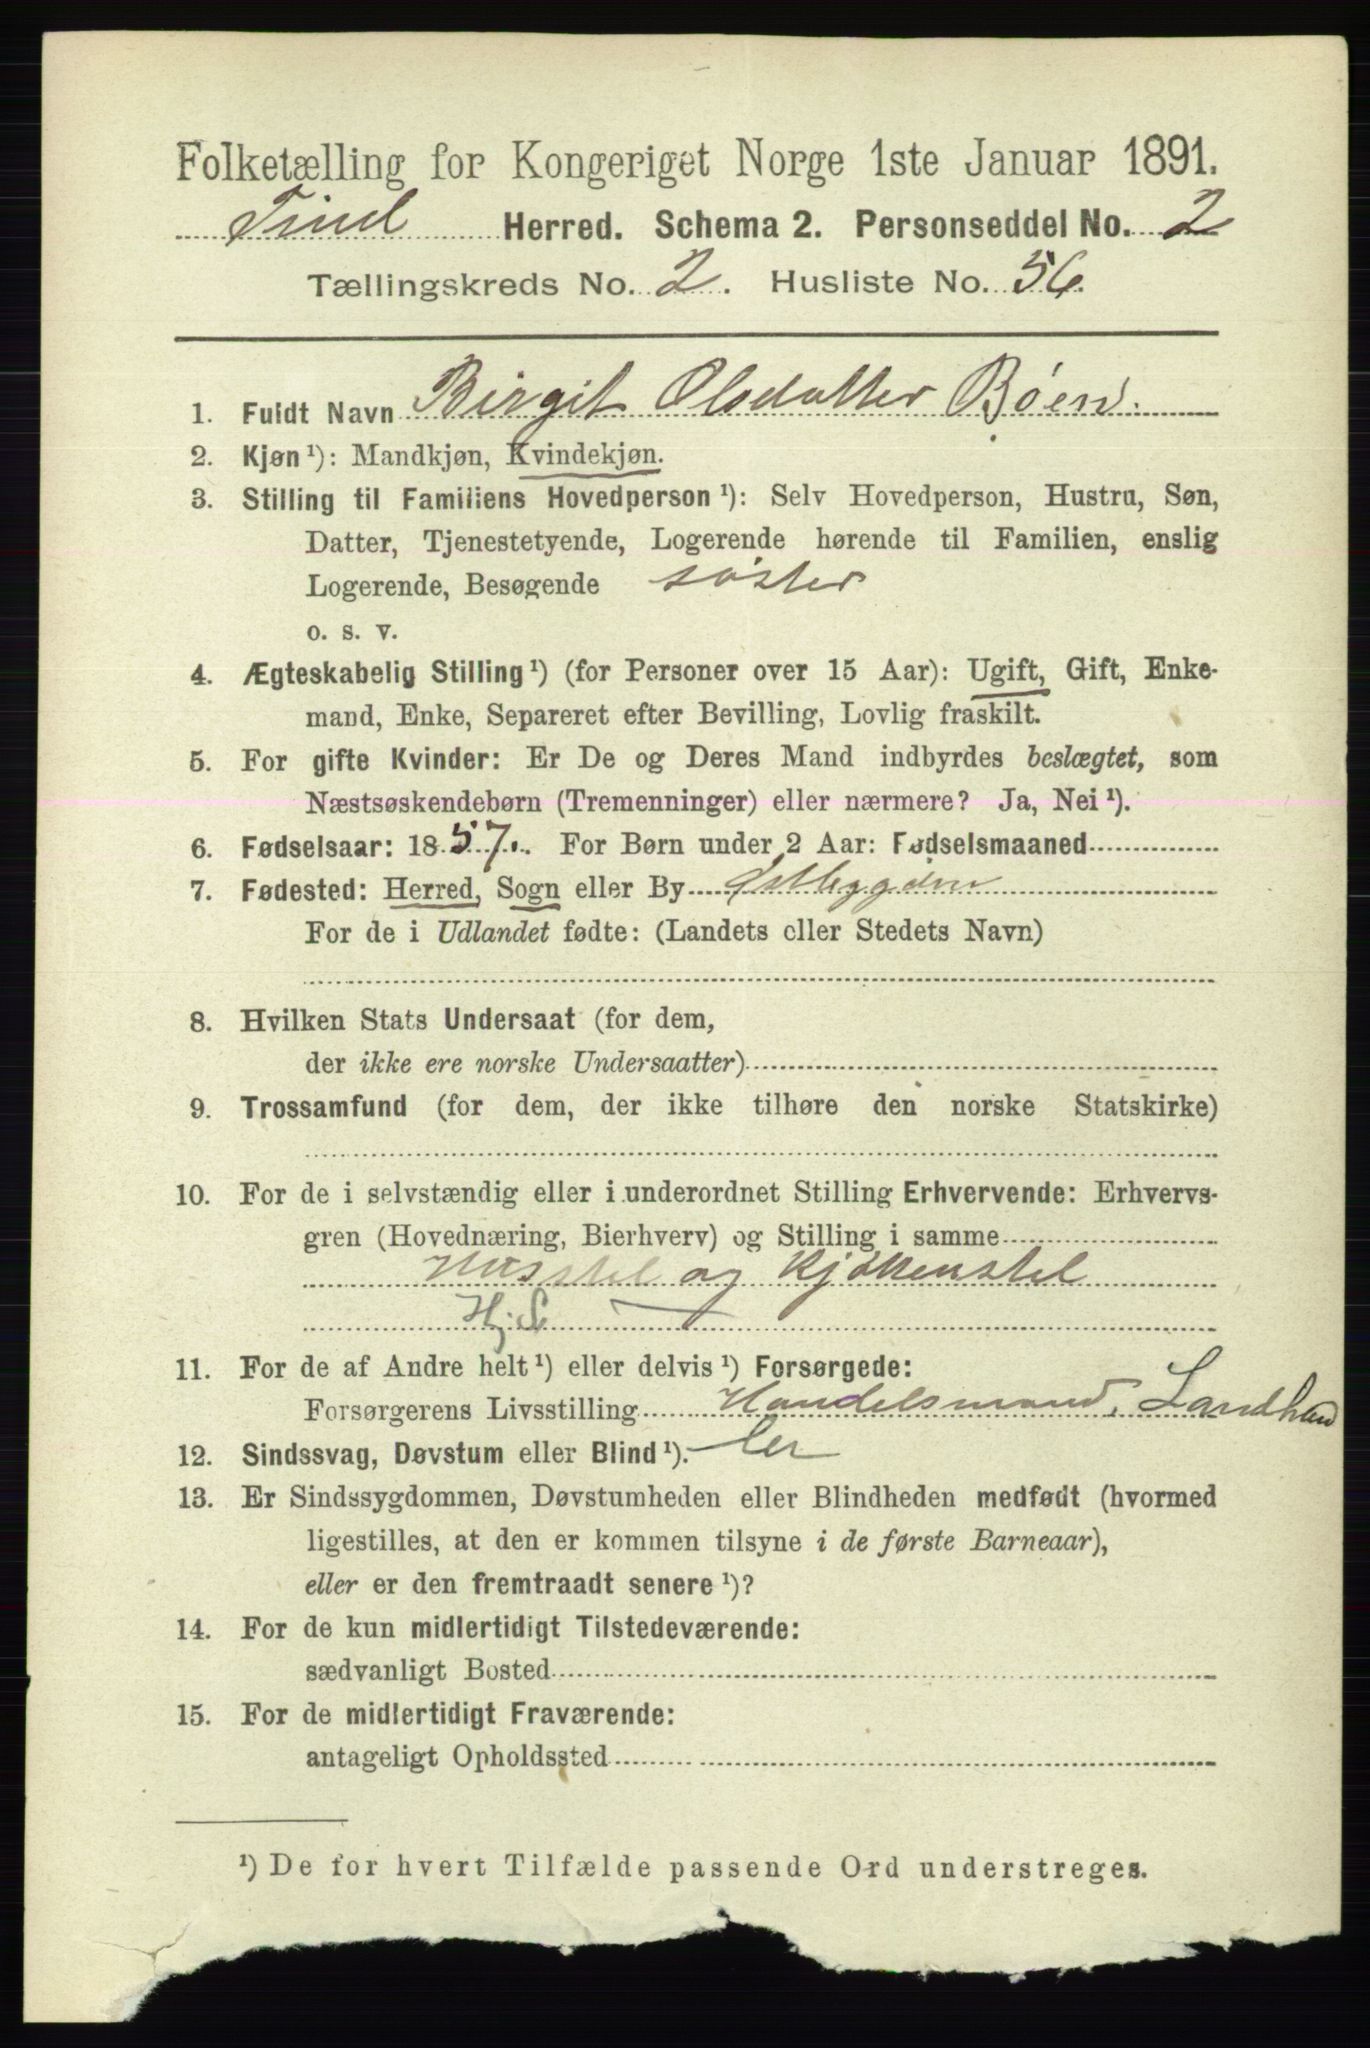 Folketælling for Kongeriget Norge 1ste Januar 1891.
Tind Herred. Schema 2. Personseddel No. 2
Tællingskreds No. 2. Husliste No. 56.
1. Fuldt Navn Birgit Olsdatter Bøen.
2. Kjøn ¹): Mandkjøn, Kvindekjøn.
3. Stilling til Familiens Hovedperson ¹): Selv Hovedperson, Hustru, Søn,
Datter, Tjenestetyende, Logerende hørende til Familien, enslig
Logerende, Besøgende søster
o. s. v.
4. Ægteskabelig Stilling ¹) (for Personer over 15 Aar): Ugift, Gift, Enke-
mand, Enke, Separeret efter Bevilling, Lovlig fraskilt.
5. For gifte Kvinder: Er De og Deres Mand indbyrdes beslægtet, som
Næstsøskendebørn (Tremenninger) eller nærmere? Ja, Nei ¹).
6. Fødselsaar: 1857. For Børn under 2 Aar: Fødselsmaaned
7. Fødested: Herred, Sogn eller By
For de i Udlandet fødte: (Landets eller Stedets Navn)
8. Hvilken Stats Undersaat (for dem,
der ikke ere norske Undersaatter)
9. Trossamfund (for dem, der ikke tilhøre den norske Statskirke)
10. For de i selvstændig eller i underordnet Stilling Erhvervende: Erhvervs-
gren (Hovednæring, Bierhverv) og Stilling i samme
Husstel og Kjøkenstel
11. For de af Andre helt ¹) eller delvis ¹) Forsørgede:
Forsørgerens Livsstilling Handelsmand, Landhand
12. Sindssvag, Døvstum eller Blind ¹). ler
13. Er Sindssygdommen, Døvstumheden eller Blindheden medfødt (hvormed
ligestilles, at den er kommen tilsyne i de første Barneaar),
eller er den fremtraadt senere ¹)?
14. For de kun midlertidigt Tilstedeværende:
sædvanligt Bosted
15. For de midlertidigt Fraværende:
antageligt Opholdssted
¹) De for hvert Tilfælde passende Ord understreges.